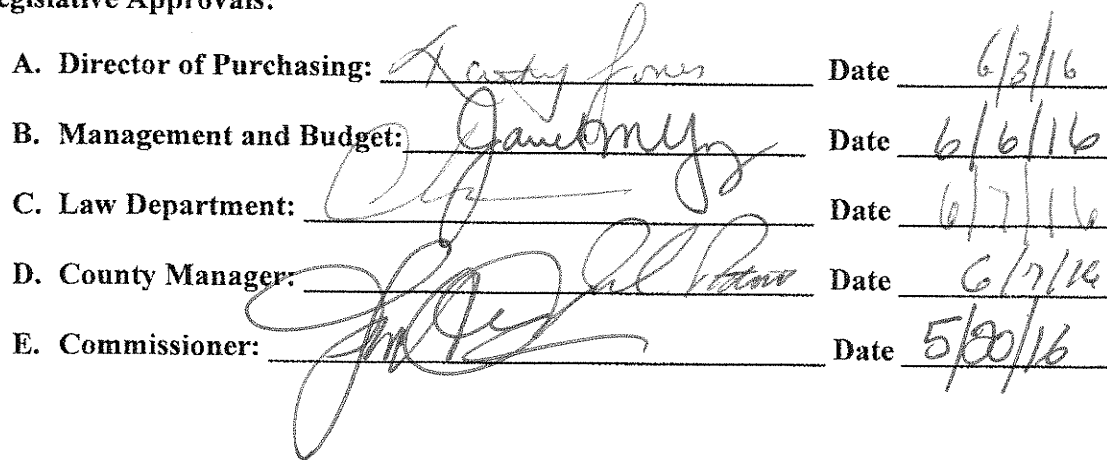 egislative Approvals:
A. Director of Purchasing: Jones Date 6/3/16
B. Management and Budget: Date 6/6/16
C. Law Department: Date 6/7/16
D. County Manager: Date 6/7/16
E. Commissioner: Date 5/20/16